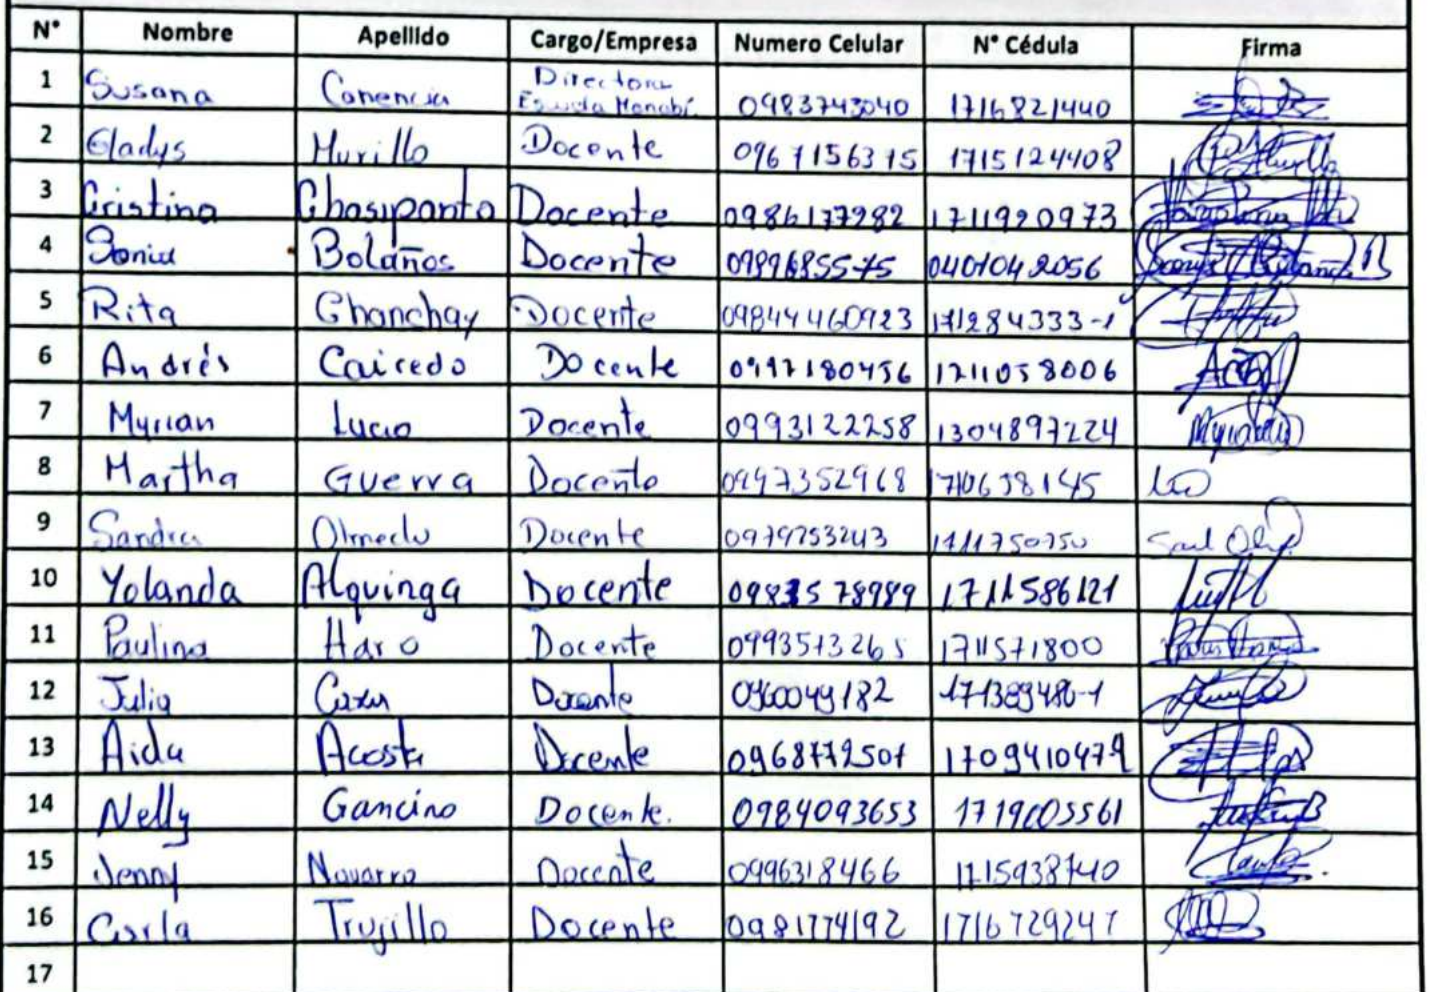 N° Nombre Apellido Cargo/Empresa Numero Celular N° Cédula Firma
1 Susana Conencia Directora Escuela Manabí. 0983743040 1716821440
2 Gladys Murillo Docente 0967156315 1715124408
3 Cristina Chasipanta Docente 0986177282 1711920973
4 Sonia Bolaños Docente 0989685575 0401042056
5 Rita Chanchay Docente 09844460923 171284333-1
6 Andrés Caicedo Docente 0997180456 1711058006
7 Myrian Lucio Docente 0993122258 1304897224
8 Martha Guerra Docente 0997352968 1710638145
9 Sandra Olmedo Docente 0979753243 1711750750
10 Yolanda Alquinga Docente 1711586121
11 Paulina Haro Docente 0993513265 1711571800
12 Julia Docente 0960049182 171389486-1
13 Aida Acosta Docente 0968772507 1709410479
14 Nelly Gancino Docente. 0984093653 1719605561
15 Jenny Navarro Docente 0996318466 1715938740
16 Carla Trujillo Docente 0981774192 1716729247
17